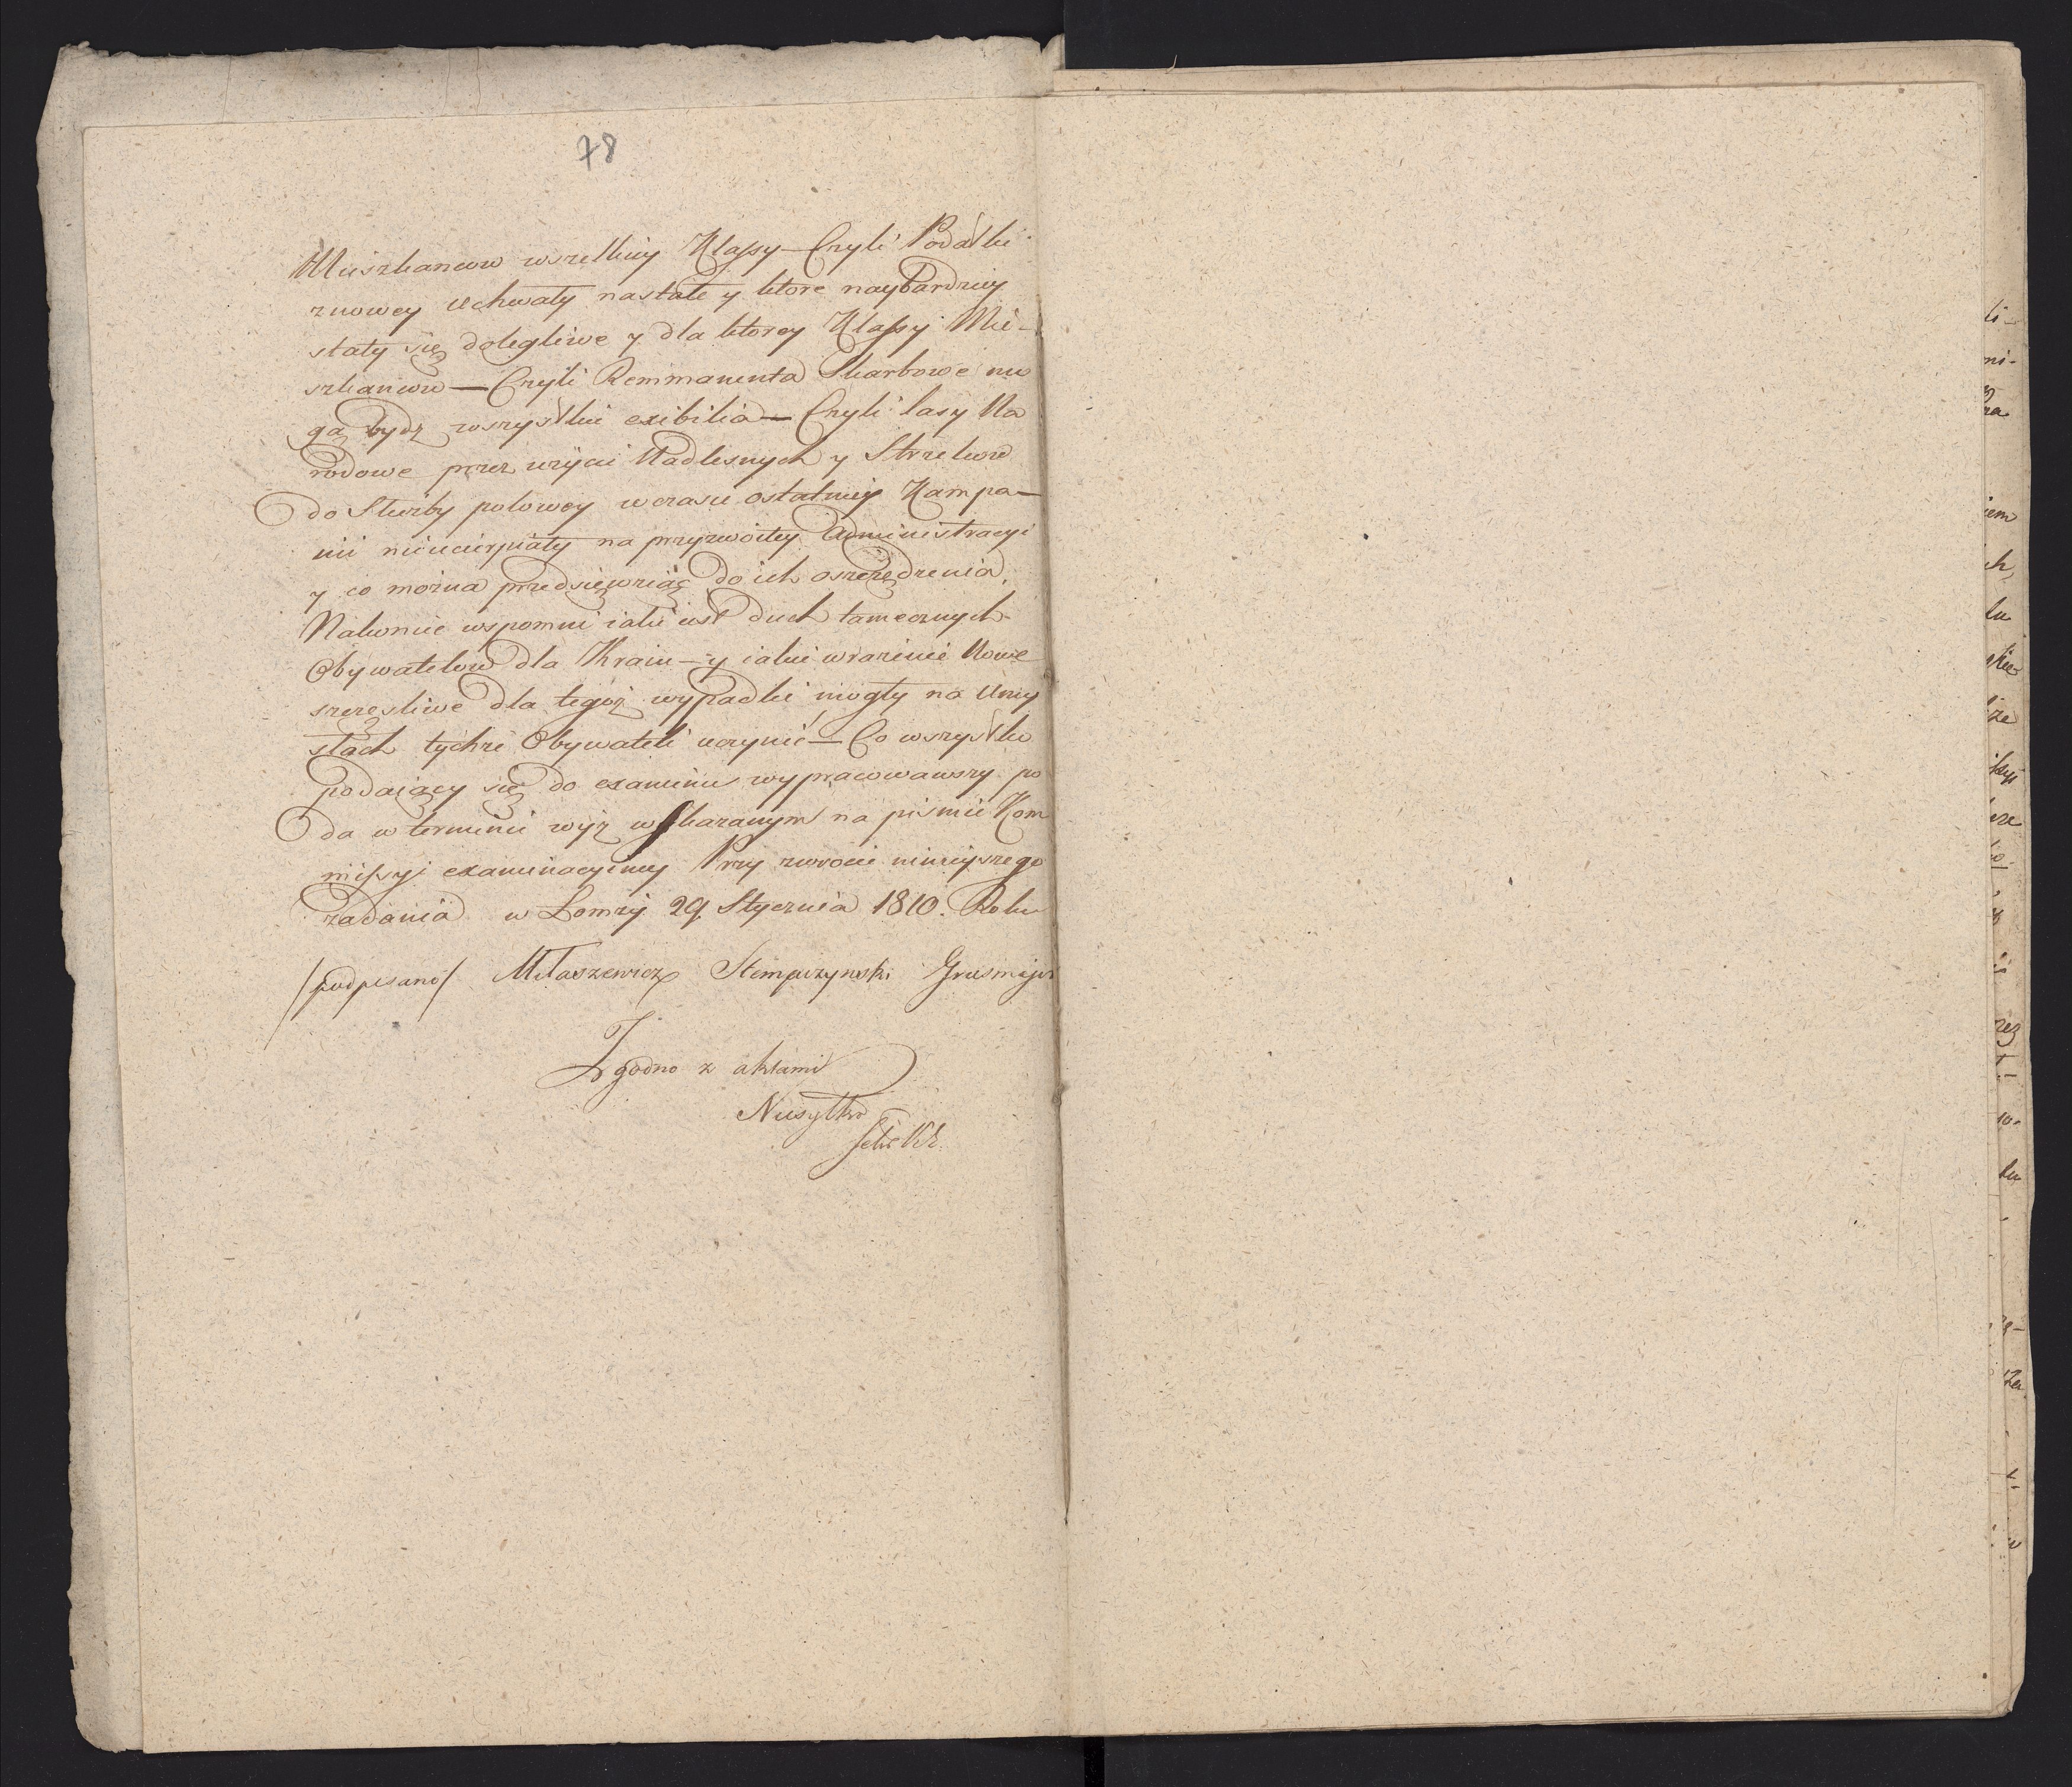 78
Mieszkancow wszelkiey Klassy — Czyli Podatki
znowey Uchwały nastałe y ktore naybardziey
stały się dolegliwe y dla ktorey Klassy Mie-
szkancow — Czyli Remmanenta Skarbowe mo
gą bydź wszystkie exibilia — Czyli lasy Na
rodowe przez użycie Nadlesnych y Strzelcow
do Służby polowey w czasie ostatniey Kampa-
nii nieucierpiały na przyzwoitey Administracyi
y co można przedsięwziąć do ich oszczędzenia,
Nakoniec wspomni iaki iest duch tamecznych
Obywatelow dla Kraiu — y iakie wrażenie Nowe
szczęsliwe dla tegoż wypadki mogły na Umy
słach tychże Obywateli uczynić — Co wszystko
podaiący się do examinu wypracowawszy po
da w terminie wyż wskazanym na pismie Kom
missyi examinacyiney Przy zwrocie ninieyszego
zadania w Łomży 29 Stycznia 1810. Roku
/podpisano/ Miłaszewicz Stempczynski
Zgodno z aktami